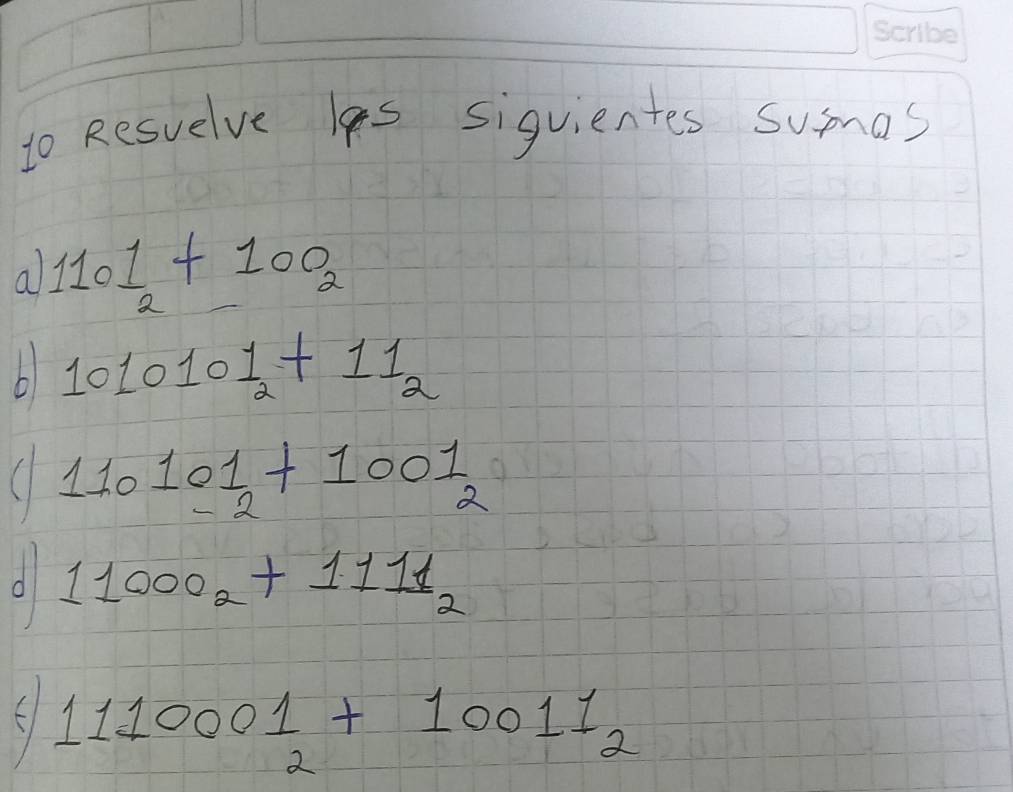 Scribe
10 Resuelve las siguientes sumas
a) 1101₂ + 100₂
b) 1010101₂ + 11₂
c) 110101₂ + 1001₂
d) 11000₂ + 1111₂
1110001₂ + 10011₂